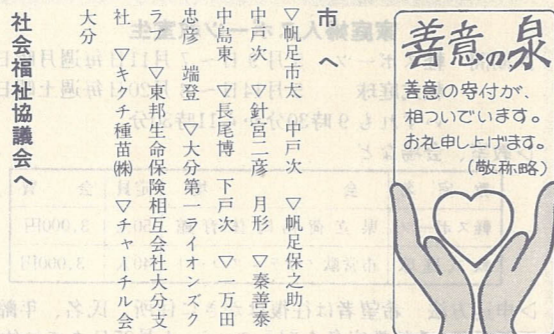 善意の泉
善意の寄付が、
相ついでいます。
お礼申し上げます。
(敬称略)
市へ
▽帆足市太 中戸次 ▽帆足保之助
中戸次 ▽針宮二彦 月形 ▽秦善泰
中島東 ▽長尾博 下戸次 ▽一万田
忠彦 端登 ▽大分第一ライオンズク
ラブ ▽東邦生命保険相互会社大分支
社 ▽キクチ種苗㈱ ▽チャーチル会
大分
社会福祉協議会へ